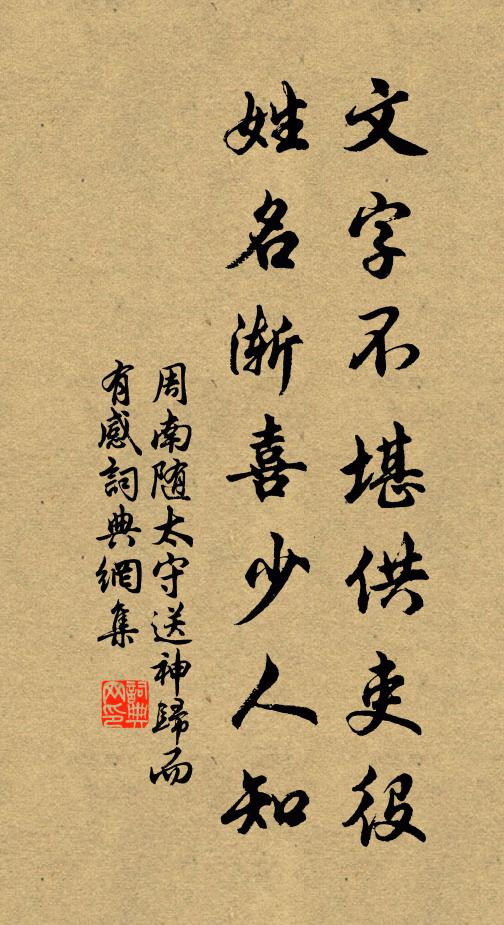 文字不堪供吏役
姓名渐喜少人知
周南随太守送神歸而
有感詞典網集
詞典
网印